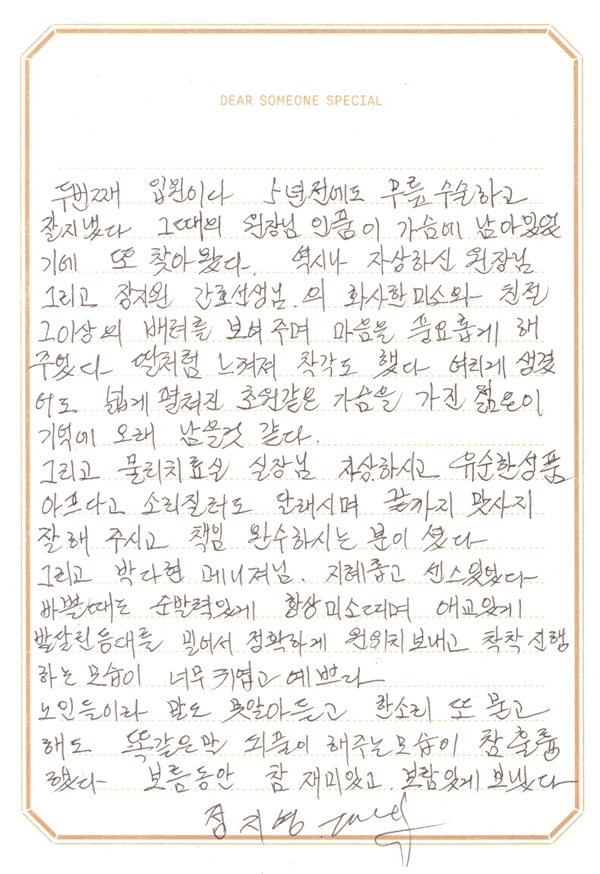 DEAR SOMEONE SPECIAL
두번째 입원이다 5년전에도 무릎 수술하고
잘지냈다 그때의 원장님 인품이 가슴에 남아있었
기에 또 찾아왔다. 역시나 자상하신 원장님
그리고 장지원 간호선생님 의 화사한 미소와 친절
그이상의 배려를 보여주며 마음을 풍요롭게 해
주었다 딸처럼 느껴져 착각도 했다 여리게 생겼
어도 넓게 펼쳐진 초원같은 가슴을 가진 젊은이
기억에 오래 남을것 같다.
그리고 물리치료실 실장님 자상하시고 유순한성품
아프다고 소리질러도 달래시며 끝까지 맛사지
잘해 주시고 책임 완수하시는 분이 셨다
그리고 박다현 메니져님. 지혜롭고 센스있었다
바쁠때도 순발력있게 항상미소띠며 애교있게
발달린등대를 밀어서 정확하게 원위치보내고 착착진행
하는 모습이 너무 귀엽고 예쁘다
노인들이라 말도 못알아듣고 한소리 또 묻고
해도 똑같은말 되풀이 해주는모습이 참 훌륭
했다 보름동안 참 재미있고 보람있게 보냈다
정지영